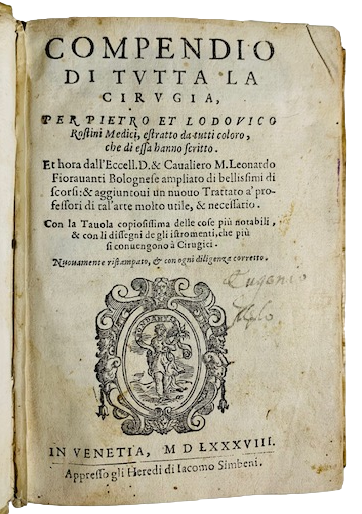 COMPENDIO
DI TVTTA LA
CIRVGIA,
PER PIETRO ET LODOVICO
Rostini Medici, estratto da tutti coloro,
che di essa hanno scritto.
Et hora dall'Eccell. D. & Caualiero M. Leonardo
Fiorauanti Bolognese ampliato di bellissimi di
scorsi: & aggiuntoui un nuouo Trattato a' pro-
fessori di tal'arte molto utile, & necessario.
Con la Tauola copiosissima delle cose più notabili,
& con li dissegni de gli istromenti, che più
si conuengono à Cirugici.
Nuouamente ristampato, & con ogni diligenza corretto.
Eugenio
IN VENETIA, M D LXXXVIII.
Appresso gli Heredi di Iacomo Simbeni.